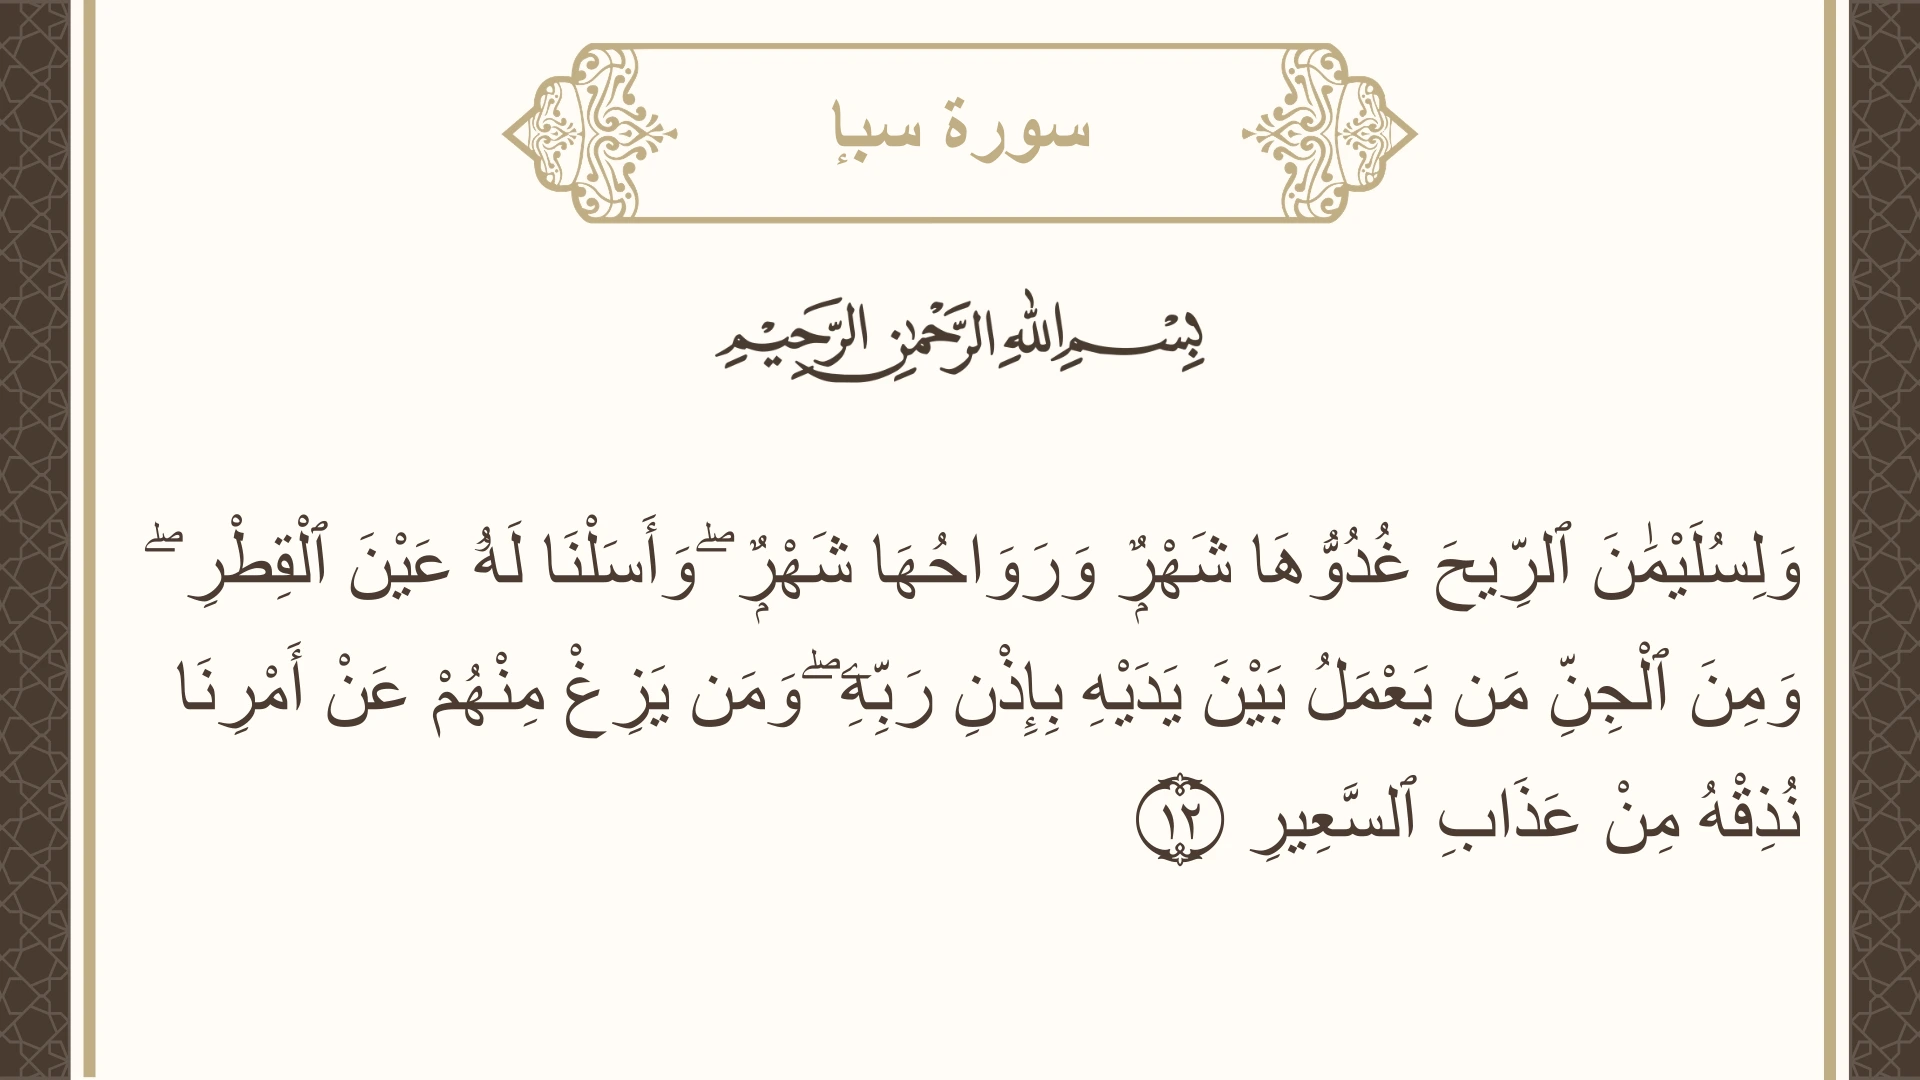 سورة سبإ
بِسْمِ اللهِ الرَّحْمٰنِ الرَّحِيْمِ
وَلِسُلَيْمَٰنَ ٱلرِّيحَ غُدُوُّهَا شَهْرٌۭ وَرَوَاحُهَا شَهْرٌۭ ۖ وَأَسَلْنَا لَهُۥ عَيْنَ ٱلْقِطْرِ ۖ
وَمِنَ ٱلْجِنِّ مَن يَعْمَلُ بَيْنَ يَدَيْهِ بِإِذْنِ رَبِّهِۦ ۖ وَمَن يَزِغْ مِنْهُمْ عَنْ أَمْرِنَا
نُذِقْهُ مِنْ عَذَابِ ٱلسَّعِيرِ ١٢